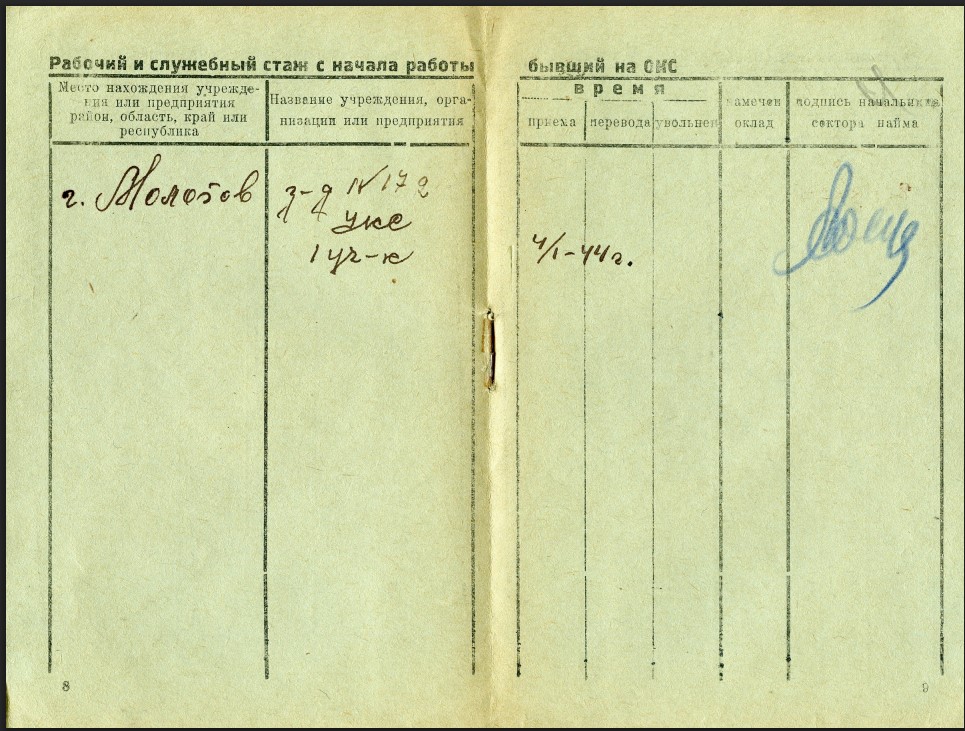 Рабочий и служебный стаж с начала работы
Место нахождения учрежде-
ния или предприятия
район, область, край или
республика
Название учреждения, орга-
низации или предприятия
г. Молотов
з-д N 172
укс
1 уч-к
8
бывший на ОКС
время
приема
перевода
увольнен
замечен
оклад
подпись начальника
сектора найма
4/I-44 г.
9